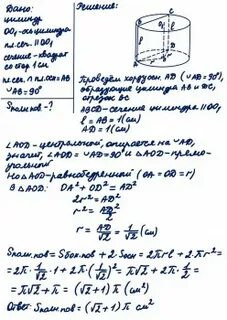 Дано:
цилиндр
OO₁-ось цилиндра
пл.сеч. || OO₁
сечение-квадрат
со стор 1 см
пл.сеч ∩ пл.осн = AD
∪AD = 90°
Sполн.пов - ?
Решение:
Проведём хорду осн. AD (∪AD = 90°),
образующие цилиндра AB и DC,
отрезок BC
ABCD-сечение цилиндра || OO₁
l = AB = 1 (см)
AD = 1 (см)
∠AOD-центральный, опирается на ∪AD,
значит, ∠AOD = ∪AD = 90° и △AOD-прямо-
угольный
Но △AOD-равнобедренный (OA = OD = r)
В △AOD: OA² + OD² = AD²
2r² = AD²
r² = AD²/2
r = AD/√2 = 1/√2 (см)
Sполн.пов = Sбок.пов + 2·Sосн = 2πrl + 2·πr² =
= 2π · 1/√2 · 1 + 2π(1/√2)² = π√2 + 2π · 1/2 =
= π√2 + π = (√2+1)π (см²)
Ответ: Sполн.пов = (√2+1)π см²